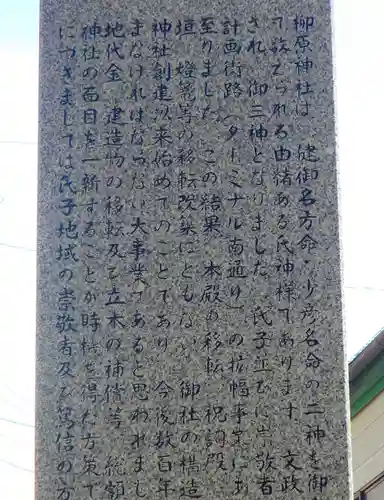 柳原神社は、健御名方命・少彦名命の二神を御
て詠てられる由緒ある氏神様であります。文政
され、御三神となりました。氏子並びに崇敬者
計画街路(タ－ミナル南通り)の拡幅事業にあ
至りました。この結果、本殿の移転、祝詞殿
垣、燈篭等の移転改築にともない、御社の構造
神社創建以来始めてのことであり、今後数百年
まなければならない大事業であると思われまし
地代金、建造物の移転及び立木の補償等、総額
神社の面目を一新することが時機を得た方策で
につきましては氏子地域の崇敬者及び篤信の方